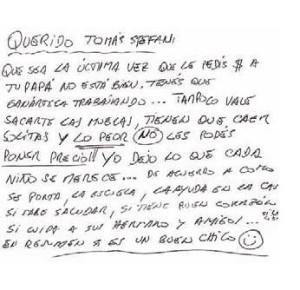 QUERIDO TOMÁS STEFANI
QUE SEA LA ÚLTIMA VEZ QUE LE PEDÍS $ A
TU PAPÁ NO ESTÁ BIEN. TENÉS QUE
GANÁRTELA TRABAJANDO... TAMPOCO VALE
SACARTE LAS MUELAS, TIENEN QUE CAER
SOLITAS Y LO PEOR (NO) LES PODÉS
PONER PRECIO!! YO DEJO LO QUE CADA
NIÑO SE MERECE... DE ACUERDO A COMO
SE PORTA, LA ESCUELA, LA AYUDA EN LA CASA
SI SABE SALUDAR, SI TIENE BUEN CORAZÓN
SI CUIDA A SUS HERMANO Y AMIGOS!...
EN RESUMEN SI ES UN BUEN CHICO